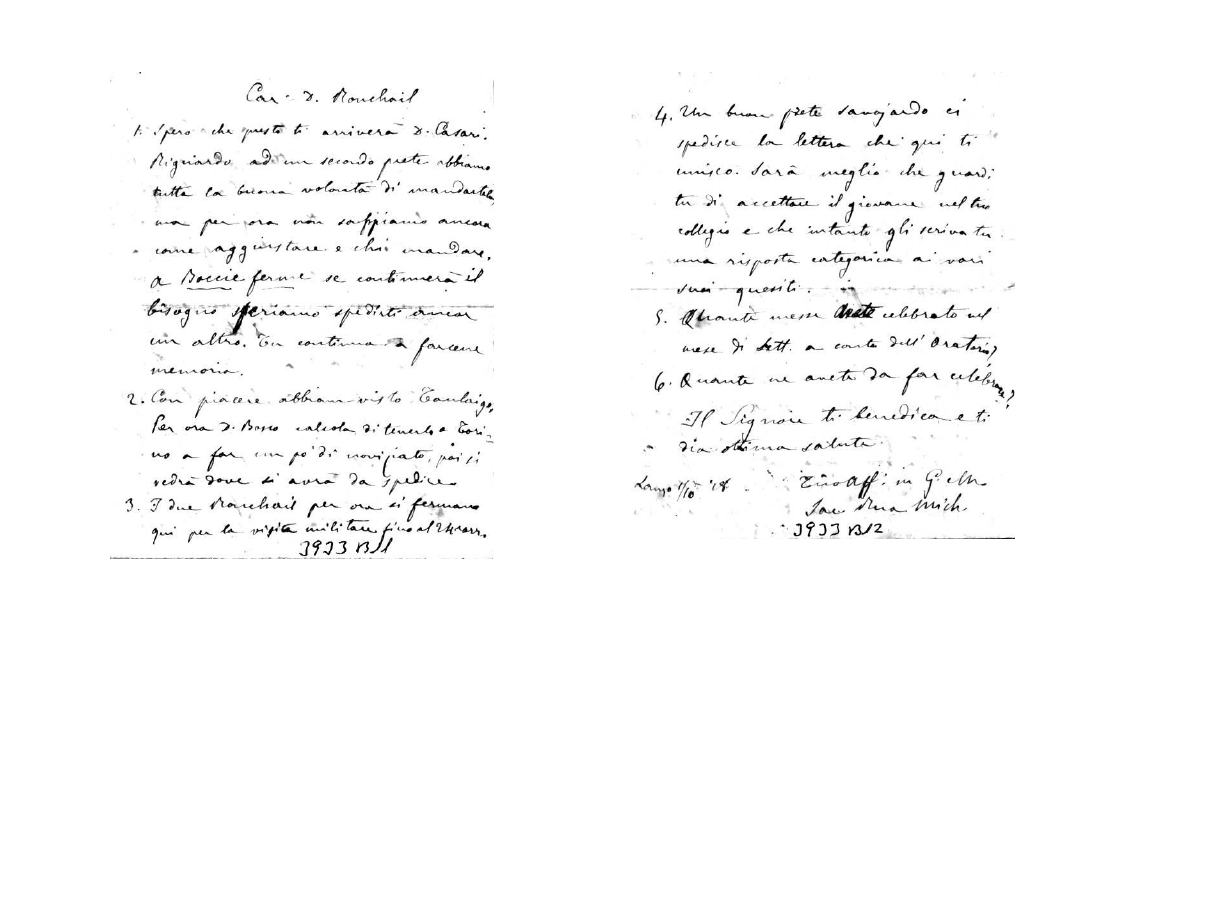 Car. D. Ronchail
1. Spero che questo ti arriverà D. Cesari.
Riguardo ad un secondo prete abbiamo
tutta la buona volontà di mandartelo,
ma per ora non sappiamo ancora
come aggiustare e chi mandare.
A Boccie ferme se continuerà il
bisogno speriamo spedirti ancor
un altro. Tu continua a farcene
memoria.
2. Con piacere abbiam visto
Per ora D. Bosco calcola di tenerlo a Tori-
no a far un po' di noviziato, poi si
vedrà dove si avrà da spedire
3. I due Ronchail per ora si fermano
qui per la visita militare fino al 24 corr.
3933 B/1
4. Un buon prete savojardo ci
spedisce la lettera che qui ti
unisco. Sarà meglio che guardi
tu di accettare il giovane nel tuo
collegio e che intanto gli scriva tu
una risposta categorica ai vari
suoi quesiti.
5. Quante messe avete celebrato nel
mese di Sett. a conto dell' Oratorio?
6. Quante ne avete da far celebrare?
Il Signore ti benedica e ti
dia ottima salute
Lanzo 1/10 78
Tuo Aff. in G. e M.
Sac. Rua Mich.
3933 B/2